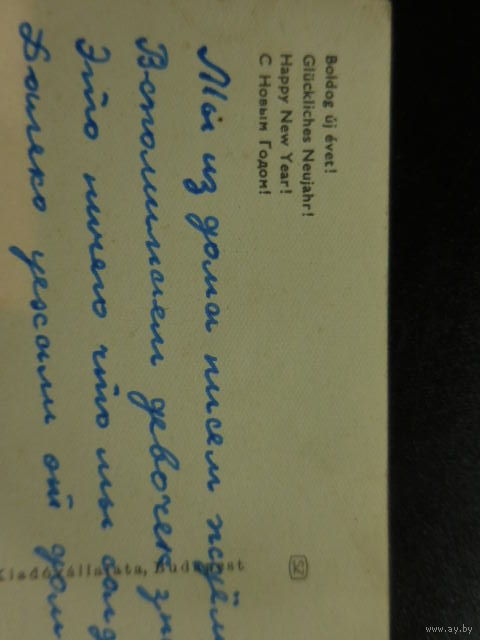 Boldog új évet!
Glückliches Neujahr!
Happy New Year!
С Новым Годом!
Мы из дома писем ждём
Вспоминаем девочек зн
Это ничего что мы
Далеко уехали от дом
Kiadóvállalata, Budapest
www.ay.by